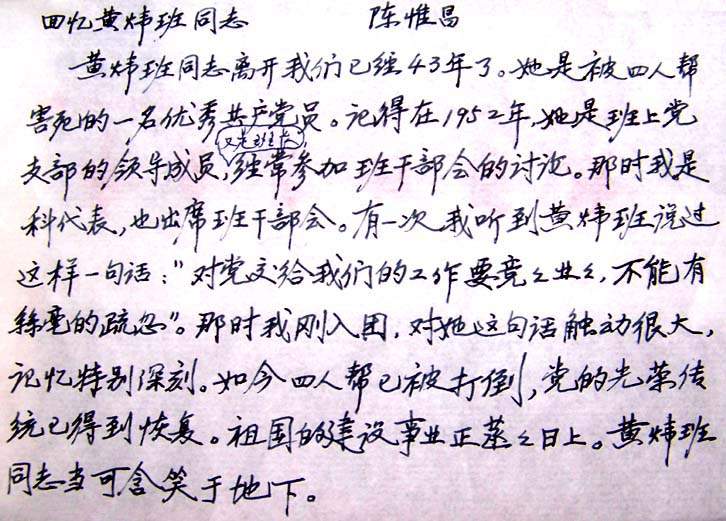 回忆黄炜班同志 陈惟昌
黄炜班同志离开我们已经43年了。她是被四人帮
害死的一名优秀共产党员。记得在1952年,她是班上党
支部的领导成员,又是班长,经常参加班干部会的讨论。那时我是
科代表,也出席班干部会。有一次我听到黄炜班说过
这样一句话:"对党交给我们的工作要兢々业々,不能有
丝毫的疏忽"。那时我刚入团,对她这句话触动很大,
记忆特别深刻。如今四人帮已被打倒,党的光荣传
统已得到恢复。祖国的建设事业正蒸々日上。黄炜班
同志当可含笑于地下。